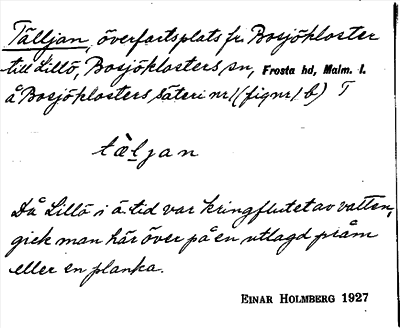 Tälljan, överfartsplats fr. Bosjökloster
till Lillö, Bosjöklosters sn, Frosta hd, Malm. l.
å Bosjöklosters säteri nr 1 (fig nr 1 b) T
tὰljan
Då Lillö i ä. tid var kringflutet av vatten,
gick man här över på en utlagd pråm
eller en planka.
EINAR HOLMBERG 1927